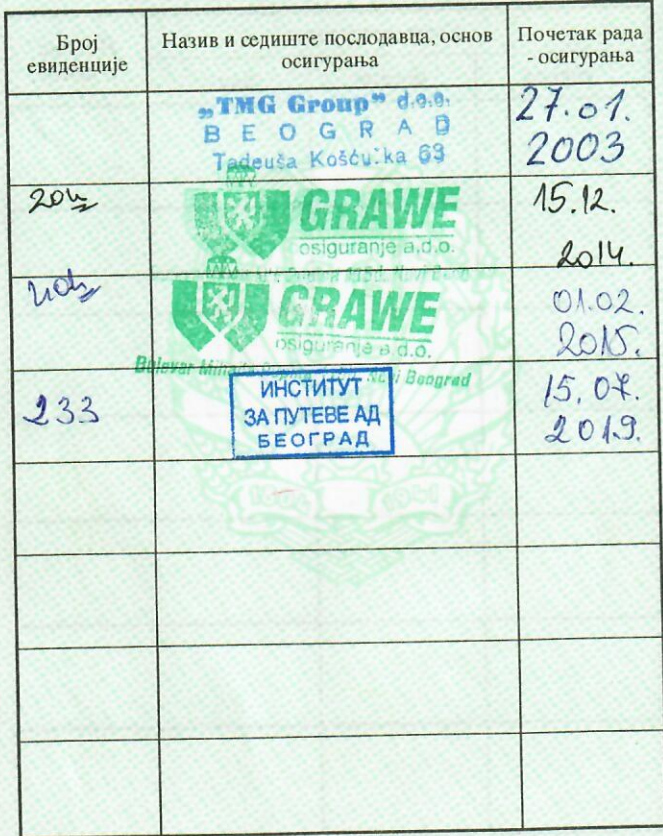 Број
евиденције
Назив и седиште послодавца, основ
осигурања
Почетак рада
- осигурања
„TMG Group” d.o.o.
BEOGRAD
Tadeuša Košćuška 63
27.01.
2003
204
GRAWE
osiguranje a.d.o.
15.12.
2014.
GRAWE
osiguranje a.d.o.
Bulevar Mihajla Pupina Novi Beograd
01.02.
2015.
233
ИНСТИТУТ
ЗА ПУТЕВЕ АД
БЕОГРАД
15.07.
2019.